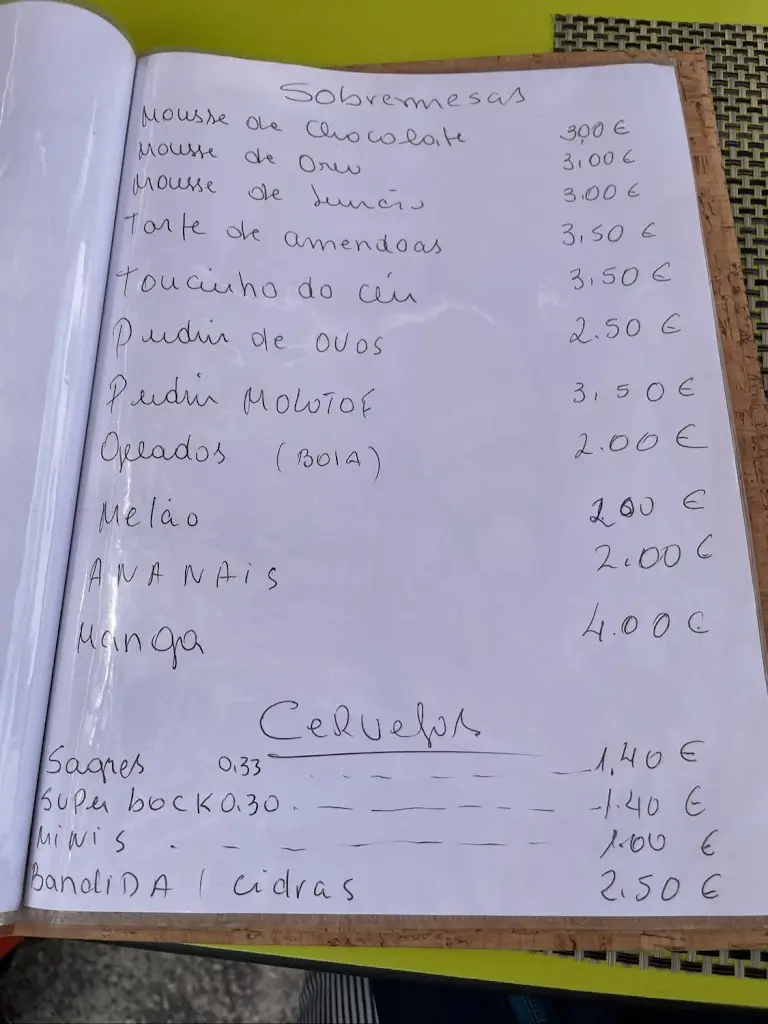 Sobremesas
Mousse de Chocolate 3,00 €
Mousse de Oreo 3,00 €
Mousse de 3.00 €
Tarte de amendoas 3,50 €
Toucinho do céu 3,50 €
Pudin de ovos 2.50 €
Pudin MOLOTOF 3,50 €
Gelados (BOLA) 2.00 €
Melão 2,00 €
ANANAIS 2.00 €
Manga 4.00 €
Cervejas
Sagres 0,33 1,40 €
SUPER bOCK 0,30 1.40 €
MINIS 1.00 €
BandiDA / Cidras 2.50 €